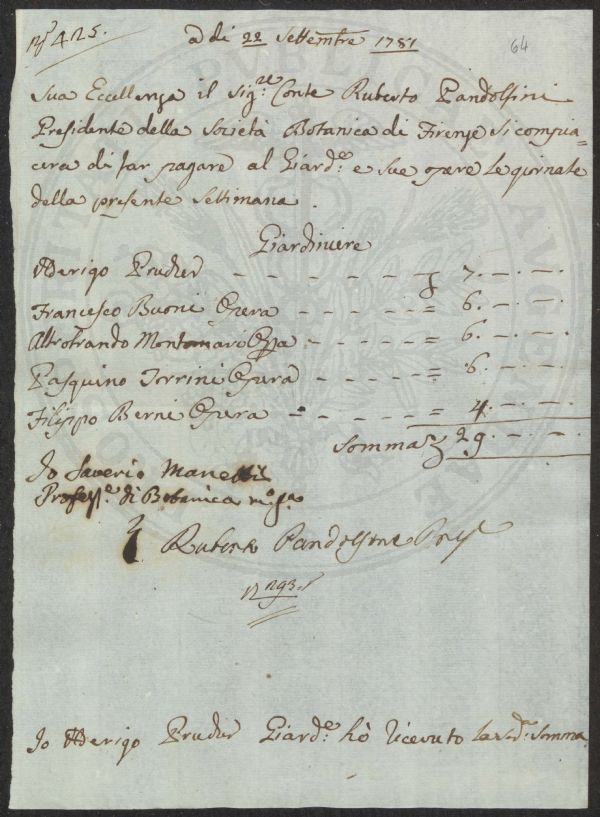 N.° 425.
64
a di 22 Settembre 1781
Sua Eccellenza il Sig.re Conte Ruberto Pandolfini
Presidente della Società Botanica di Firenze si compia=
cerà di far pagare al Giard.e e sue opere le giornate
della presente Settimana.
Giardiniere
Arrigo Pruder - - - - - - - £ 7. - . - .
Francesco Buoni Opera - - - - - = 6. - . - .
Altobrando Montomari Opa - - - - = 6. - . - .
Pasquino Torrini Opera - - - - - = 6. - . - .
Filippo Berni Opera - - - - - = 4. - . - .
Somma £ 29. - . - .
Io Saverio Manetti
Profess.e di Botanica m.o p.a
Ruberto Pandolfini Pres.
N 293.
Io Arrigo Pruder Giard.e hò ricevuto la sud.a somma